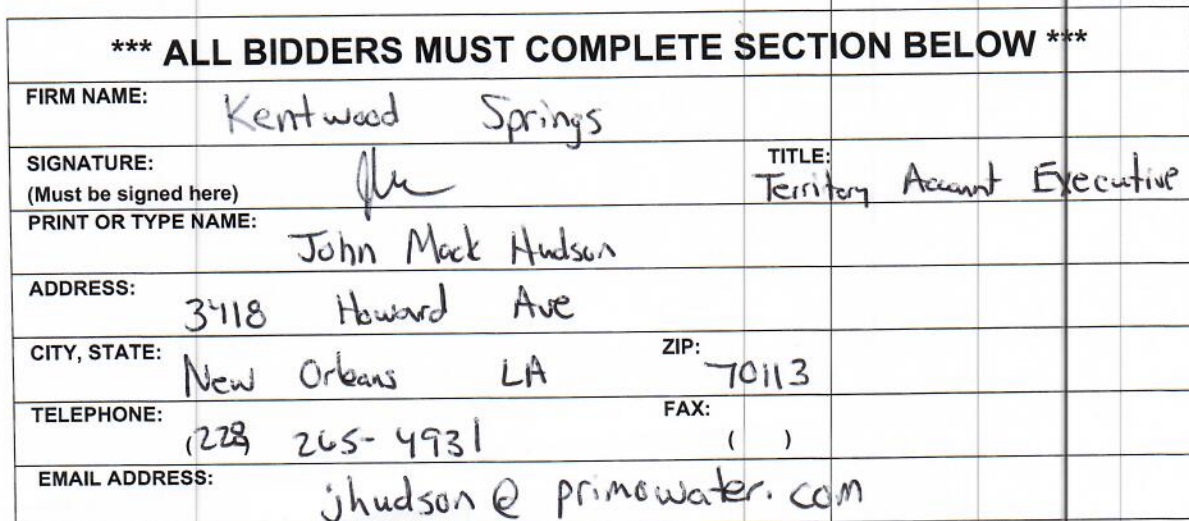 *** ALL BIDDERS MUST COMPLETE SECTION BELOW ***
FIRM NAME: Kentwood Springs
SIGNATURE: TITLE:
(Must be signed here) Territory Account Executive
PRINT OR TYPE NAME: John Mack Hudson
ADDRESS: 3418 Howard Ave
CITY, STATE: New Orleans LA ZIP: 70113
TELEPHONE: (228) 265-4931 FAX: ( )
EMAIL ADDRESS: jhudson@primowater.com